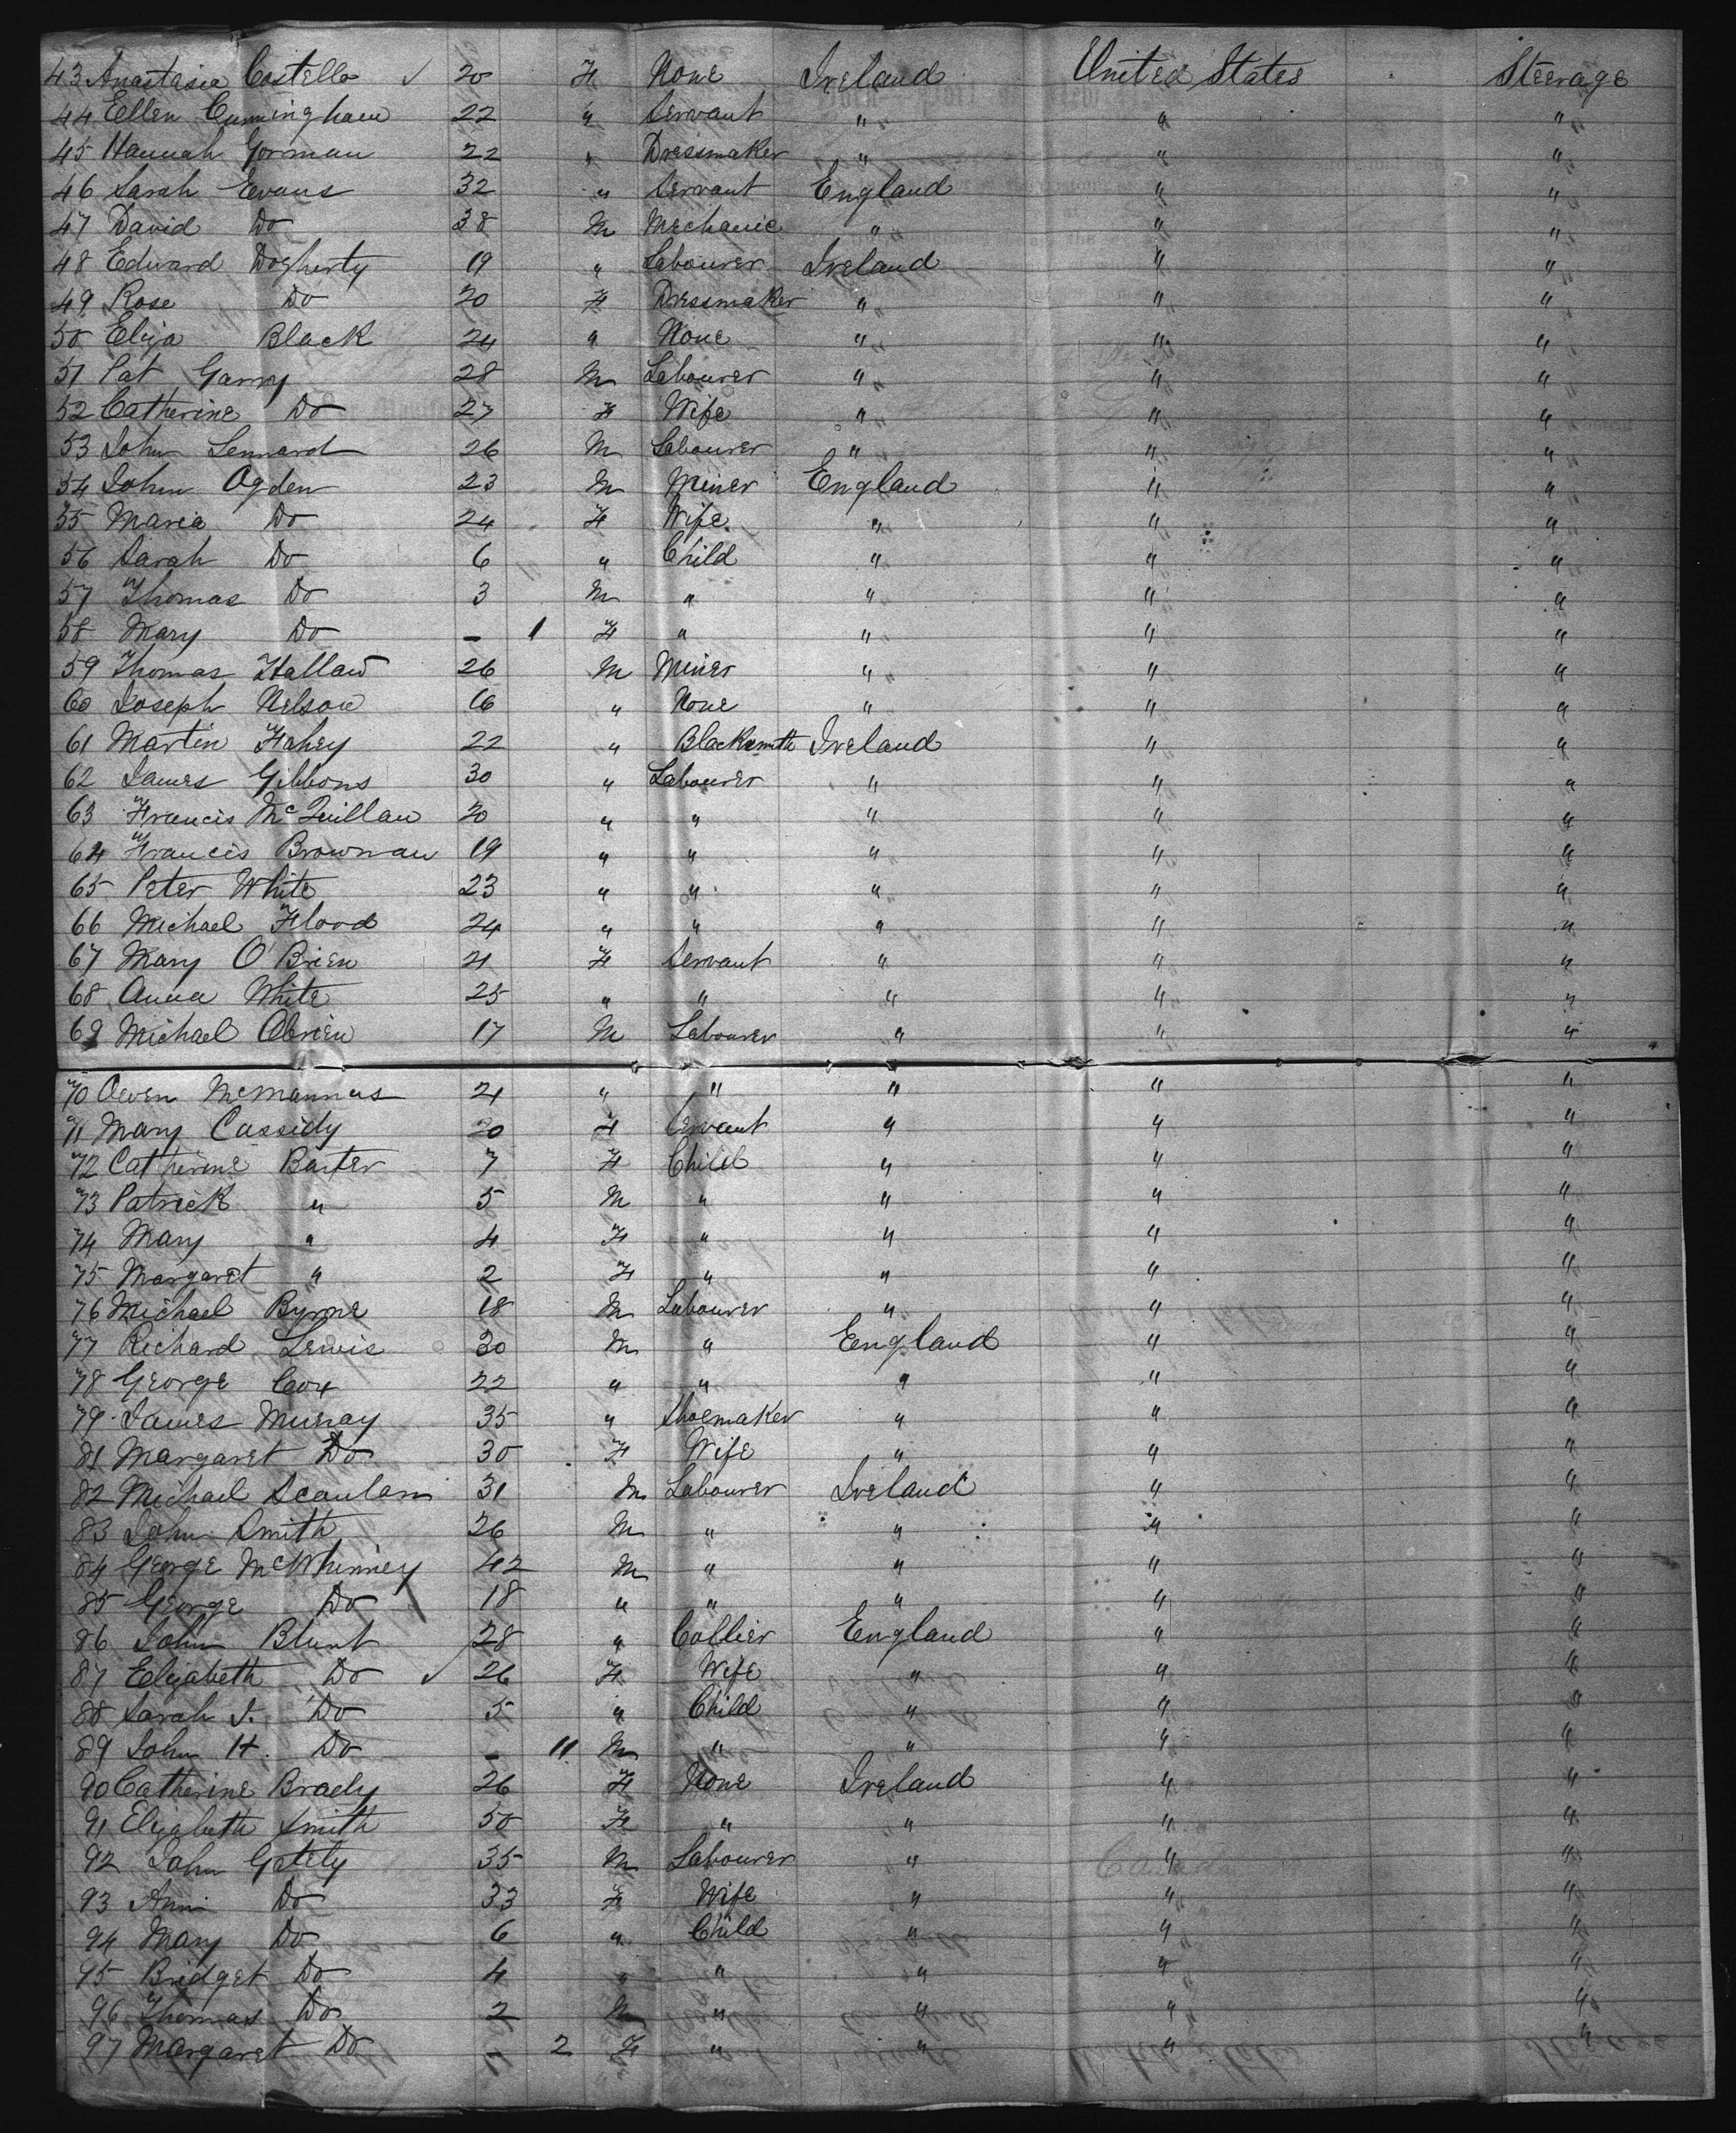 43 Anastasia Costello ✓ 20 F None Ireland United States Steerage
44 Ellen Cunningham 22 " Servant " " "
45 Hannah Gorman 22 " Dressmaker " " "
46 Sarah Evans 32 " Servant England " "
47 David Do 38 M Mechanic " " "
48 Edward Dogherty 19 " Labourer Ireland " "
49 Rose Do 20 F Dressmaker " " "
50 Eliza Black 24 " None " " "
51 Pat Garry 28 M Labourer " " "
52 Catherine Do 27 F Wife " " "
53 John Lennard 26 M Labourer " " "
54 John Ogden 23 M Miner England " "
55 Maria Do 24 F Wife " " "
56 Sarah Do 6 " Child " " "
57 Thomas Do 3 M " " " "
58 Mary Do - 1 F " " " "
59 Thomas 26 M Miner " " "
60 Joseph Nelson 16 " None " " "
61 Martin Fahey 22 " Blacksmith Ireland " "
62 James Gibbons 30 " Labourer " " "
63 Francis McQuillan 20 " " " " "
64 Francis Brownan 19 " " " " "
65 Peter White 23 " " " " "
66 Michael Flood 24 " " " " "
67 Mary O'Brien 21 F Servant " " "
68 Anna White 25 " " " " "
69 Michael Obrien 17 M Labourer " " "
70 Owen McMannus 21 " " " " "
71 Mary Cassidy 20 F Servant " " "
72 Catherine Baxter 7 F Child " " "
73 Patrick " 5 M " " " "
74 Mary " 4 F " " " "
75 Margaret " 2 F " " " "
76 Michael Byrne 18 M Labourer " " "
77 Richard Lewis 30 M " England " "
78 George Cox 22 " " " " "
79 James Murray 35 " Shoemaker " " "
81 Margaret Do 30 F Wife " " "
82 Michael Scanlan 31 M Labourer Ireland " "
83 John Smith 26 M " " " "
84 George McWhinney 42 M " " " "
85 George Do 18 " " " " "
86 John Blunt 28 " Collier England " "
87 Elizabeth Do ✓ 26 F Wife " " "
88 Sarah J. Do 5 " Child " " "
89 John H. Do - 11 M " " " "
90 Catherine Brady 26 F None Ireland " "
91 Elizabeth Smith 50 F " " " "
92 John Gately 35 M Labourer " " "
93 Ann Do 33 F Wife " " "
94 Mary Do 6 " Child " " "
95 Bridget Do 4 " " " " "
96 Thomas Do 2 M " " " "
97 Margaret Do - 2 F " " " "